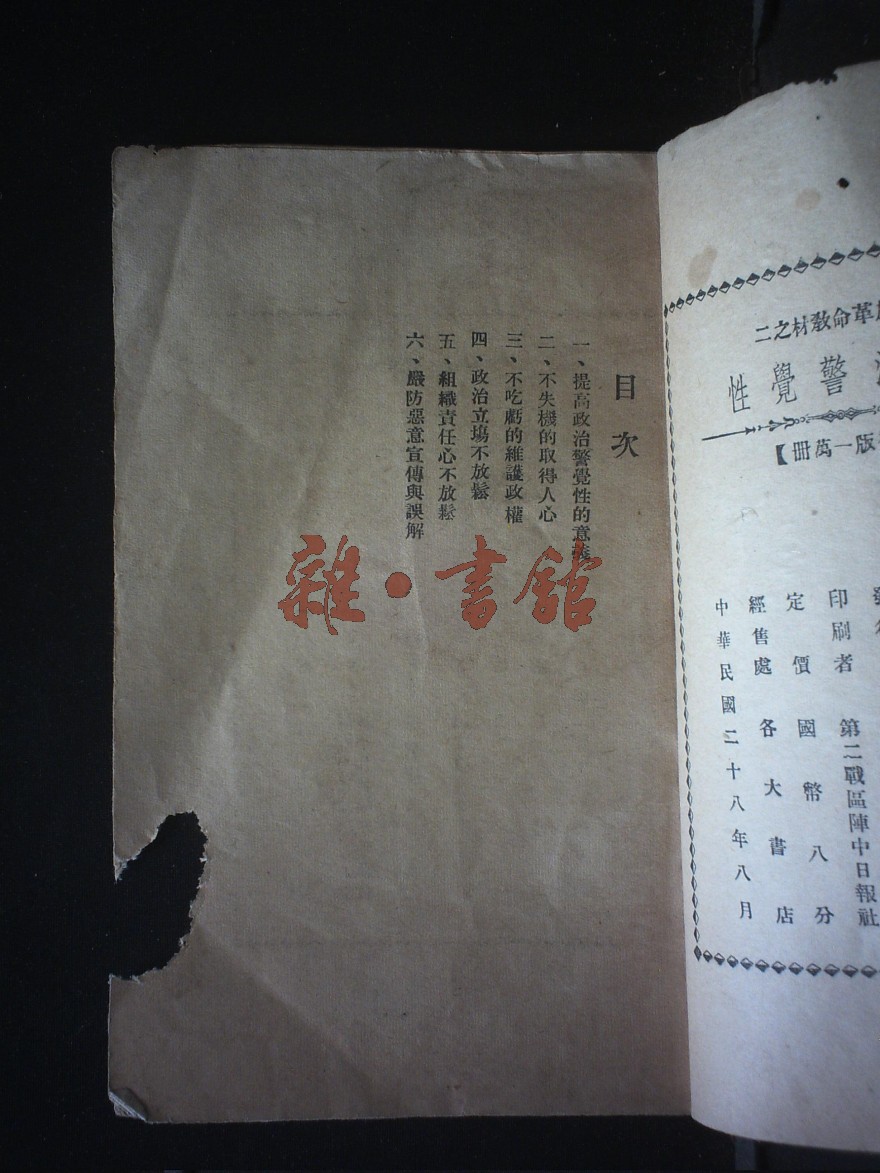 革命敎材之二
警覺性
版一萬冊】
印刷者 第二戰區陣中日報社
定價 國幣八分
經售處 各大書店
中華民國二十八年八月
目次
一、提高政治警覺性的意義
二、不失機的取得人心
三、不吃虧的維護政權
四、政治立場不放鬆
五、組織責任心不放鬆
六、嚴防惡意宣傳與誤解
雜·書館